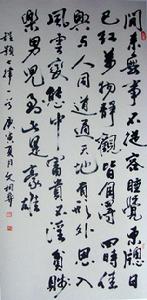 閒来無事不從容睡覺東窗日
已紅萬物靜觀皆自得四時佳
興與人同道通天地有形外思入
風雲變態中富貴不淫貧賤
樂男兒到此是豪雄
程顥七律一首 庚寅夏月